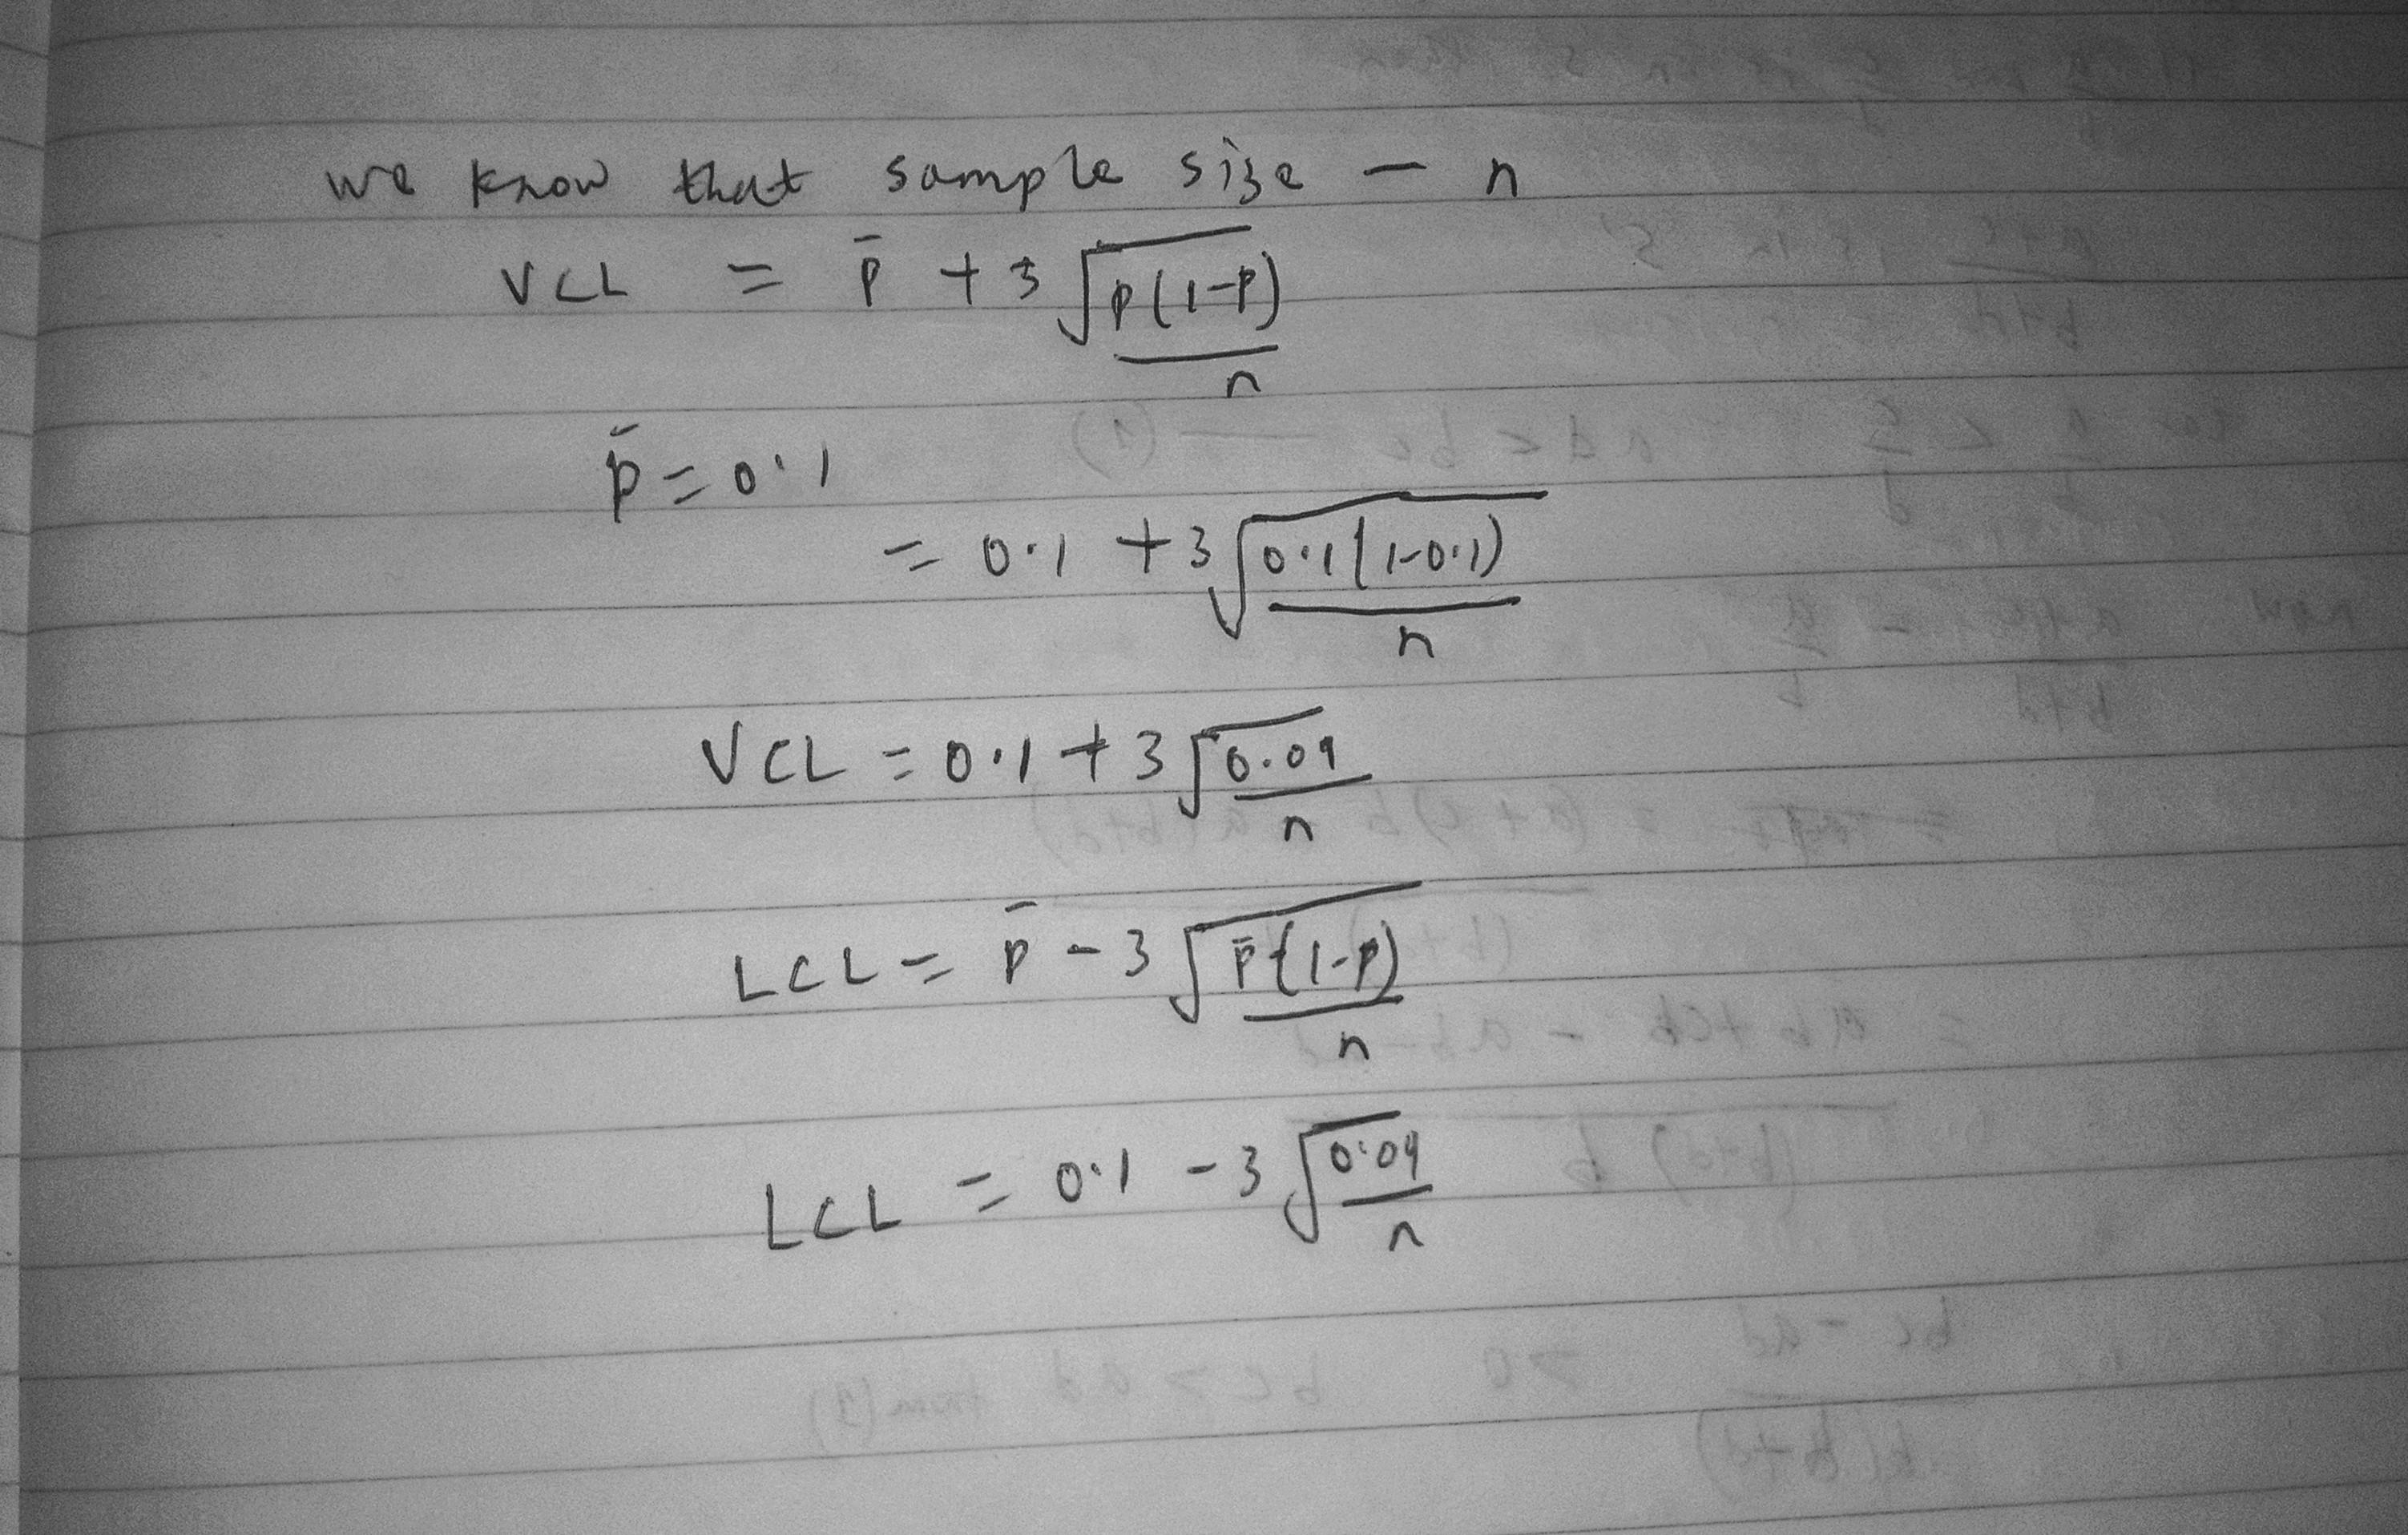 we know that sample size - n
VCL = p̄ + 3 √p(1-p)
n
p̄ = 0.1
= 0.1 + 3 √0.1(1-0.1)
n
VCL = 0.1 + 3 √0.09
n
LCL = p̄ - 3 √p̄(1-p)
n
LCL = 0.1 - 3 √0.09
n